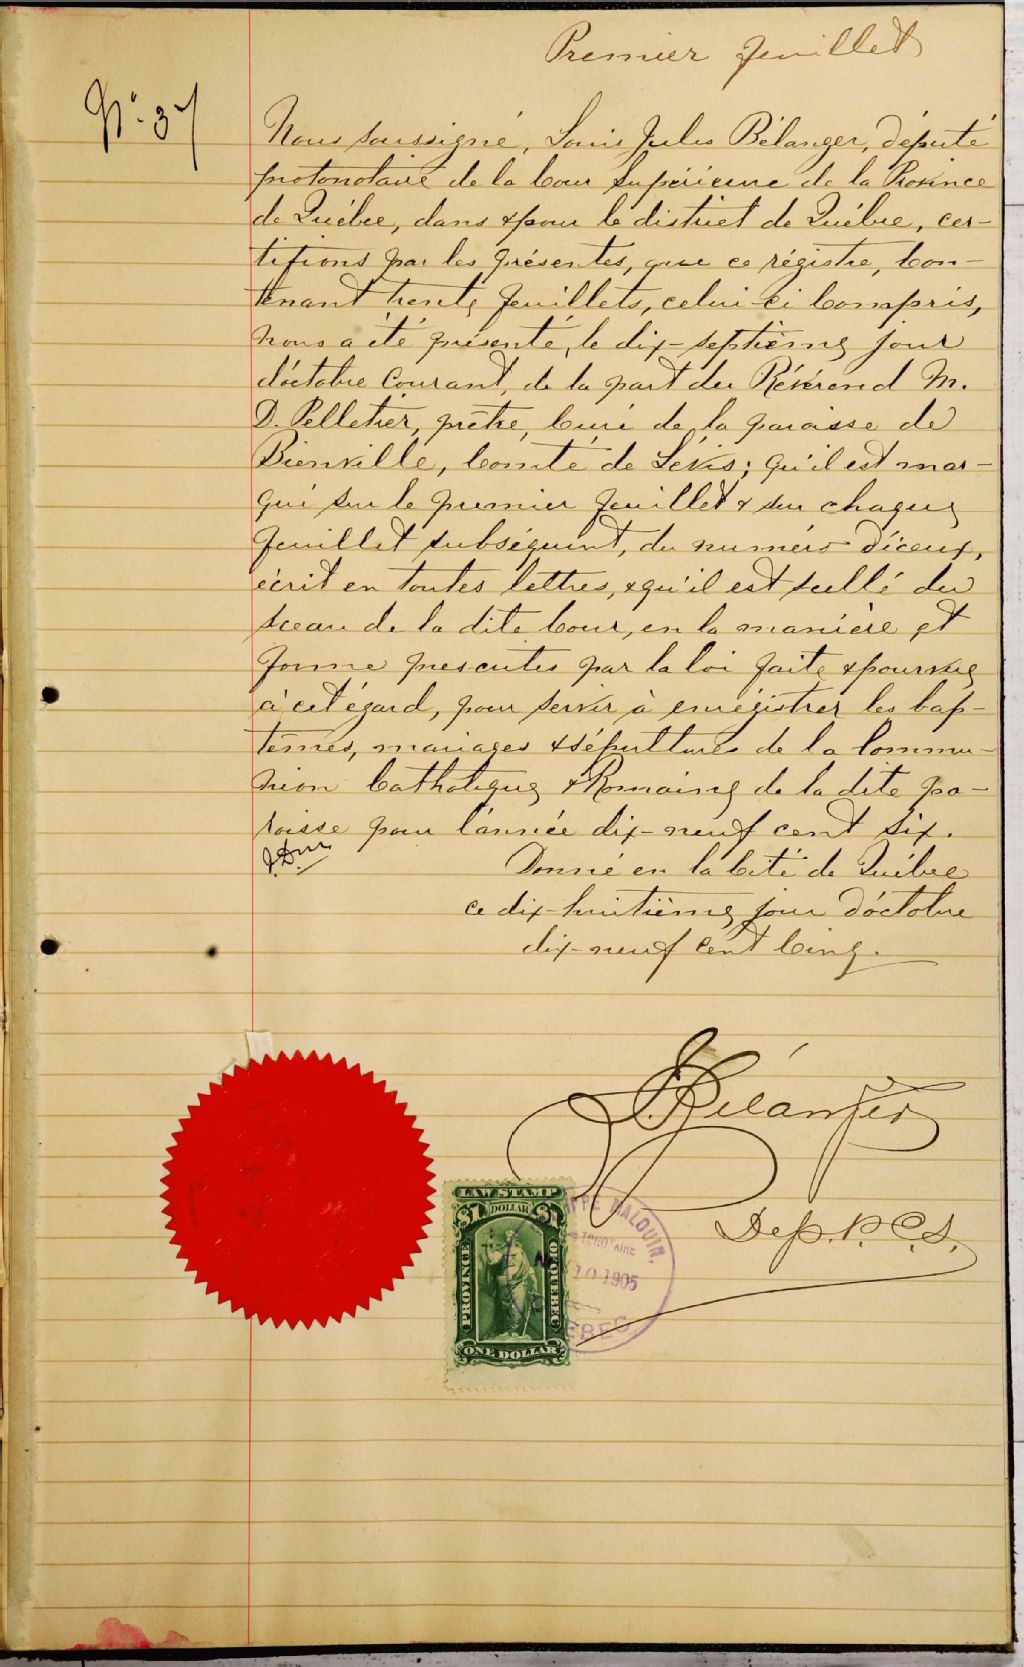 Premier feuillet
No. 37
Nous soussigné, Louis Jules Bélanger, député
protonotaire de la Cour Supérieure de la Province
de Québec, dans & pour le district de Québec, cer-
tifions par les présentes, que ce régistre, Con-
tenant trente feuillets, celui-ci Compris,
nous a été présenté, le dix-septième jour
d'octobre Courant, de la part du Révérend M.
D. Pelletier, prêtre, Curé de la paroisse de
Bienville, Comté de Lévis; qu'il est mar-
qué sur le premier feuillet & sur chaque
feuillet subséquent, du numéro d'iceux,
écrit en toutes lettres, & qu'il est scellé du
sceau de la dite Cour, en la manière et
forme prescrites par la loi faite & pourvue
à cet égard, pour servir à enrégistrer les bap-
têmes, mariages & sépultures de la Commu-
nion Catholique & Romaine de la dite pa-
roisse pour l'année dix-neuf cent six.
Donné en la Cité de Québec
ce dix-huitième jour d'octobre
dix-neuf cent Cinq.
Bélanger
Dep. P. C. S.
LAW STAMP
$1 DOLLAR $1
PROVINCE OF QUEBEC
ONE DOLLAR
MALOUIN.
10 1905